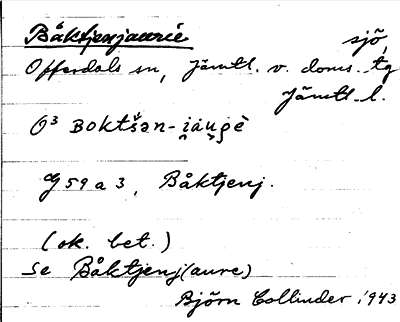 Båktjenjaurie sjö,
Offerdals sn, Jämtl. v. doms. tg
Jämtl. l.
O³ Boktšən-i̯au̯gè
G 59 a 3, Båktjenj.
(ok. bet.)
Se Båktjenj(aure)
Björn Collinder 1943